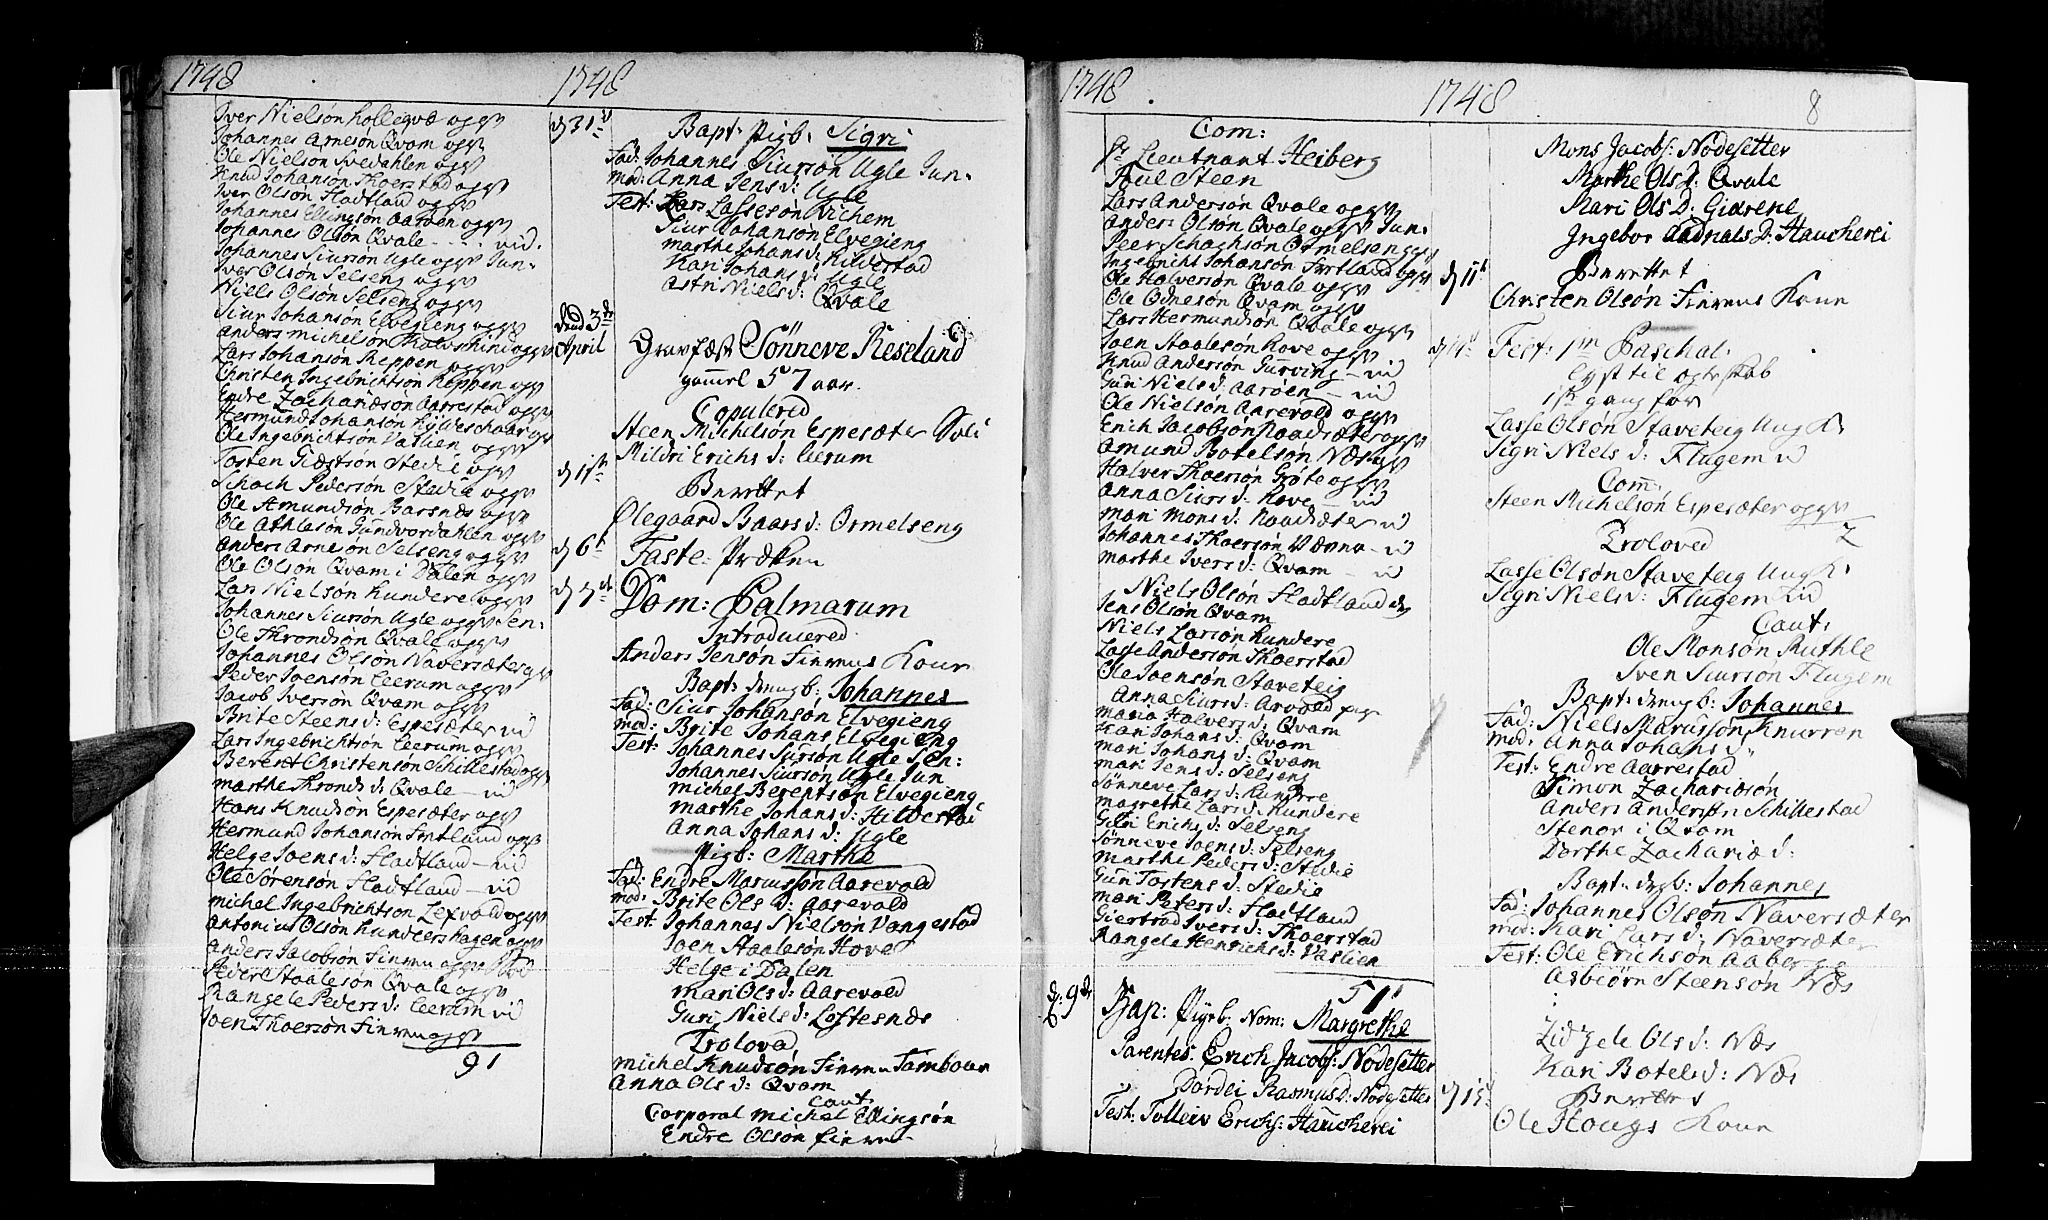 1748
Iver Nielsøn Hollegvæ og hs
Johannes Arnesøn Qvam og hs
Ole Nielsøn Svedahlen og hs
Knud Johansøn Thorstad og hs
Iver Olsøn Fladtland og hs
Johannes Ellingsøn Aarøen og hs
Johannes Olsøn Qvale - - - vid.
Johannes Siursøn Ugle og hs Jun.
Iver Olsøn Selseng og hs
Niels Olsøn Selseng og hs
Siur Johansøn Elvegieng og hs
Anders Michelsøn og hs
Lars Johansøn Reppen og hs
Christen Ingebrichtsøn Reppen og hs
Endre Zachariæsøn Aarrestad og hs
Hermund Johansøn
Ole Ingebrichtsøn Vaslien og hs
Torsten Giæstsøn Stedie og hs
Schach Pedersøn Stedie og hs
Ole Amundsøn Barsnæs og hs
Ole Athlesøn Gundvordahlen og hs
Anders Arnesøn Selseng og hs
Ole Olsøn Qvam i Dalen og hs
Lars Nielsøn Hundere og hs
Johannes Siursøn Ugle og hs Sen.
Ole Throndsøn Qvale og hs
Johannes Olsøn Naversæter
Peder Joensøn Eerum og hs
Jacob Iversøn Qvam og hs
Brite Steens d: Espesæter vid
Lars Ingebrichtsøn Eerum og hs
Berent Christensøn Schikestad og hs
Marthe Thronds d: Qvale - vid
Hans Knudsøn Espesæter og hs
Hermund Johansøn Frtland og hs
Helge Joens d: Fladtland - vid
Ole Sørensøn Fladtland - vid
Michel Ingebrichtsøn Lexvald og hs
Antonius Olsøn Hundershagen og hs
Anders Jacobsøn Fimreu og hs
Peder Staalesøn Qvale og hs
Rangele Peders d: Eerum vid
Joen Thoersøn Fimreu og hs
91
1748
d 31te
Bapt: Pigb: Sigri
Fad: Johannes Siursøn Ugle Jun.
Mod: Anna Jens d: Ugle
Test: Lars Lassesøn Vichem
Siur Johansøn Elvegieng
Marthe Johans d: Hildestad
Kari Johans d: Ugle
Astri Niels d: Qvale
Dend 3de April
Gravfæst Sønneve Reseland
gammel 57 aar.
Copulered
Steen Michelsøn Espesæter
Mildri Erichs d: Eerum
Berettet
Olegaard Baars d: Ormelseng
d 6te
Faste: Præken
d 7de
Dom: Palmarum
Introducered
Anders Jensøn Fimreus Kone
Bapt: drengb: Johannes
Fad: Siur Johansøn Elvegieng
Mod: Brite Johans Elvegieng
Test: Johannes Siursøn Ugle Sen:
Johannes Siursøn Ugle Jun
Michel Berentsøn Elvegieng
Marthe Johans d: Hildestad
Anna Johans d: Ugle
Pigb: Marthe
Fad: Endre Marcussøn Aarevold
Mod: Brite Ols d: Aarevold
Test: Johannes Nielsøn Vangestad
Joen Staalesøn Hove
Helge i Dalen
Mari Ols d: Aarevold
Guri Niels d: Loftesnæs
Troloved
Michel Knudsøn Fimreu Tambour
Anna Ols d: Qvam
Caut:
Corporal Michel Ellingsøn
Endre Olsøn Fimreu
1748
Com:
Hr Lieutnant Heiberg
Poul Steen
Lars Andersøn Qvale og hs
Anders Olsøn Qvale og hs Jun.
Peer Schachsøn Ormelseng
Ingebricht Johansøn Frtland og hs
Ole Halversøn Qvale og hs
Ole Odnesøn Qvam og hs
Lars Hermundsøn Qvale og hs
Joen Staalesøn Hove og hs
Knud Andersøn Gurving - vid
Guri Niels d: Aarøen - vid
Ole Nielsøn Aarevold og hs
Erich Jacobsøn Noadsæter og hs
Amund Botelsøn Næs og hs
Halver Thoersøn Grøte og hs
Anna Siurs d: Hove - vid
Mari Mons d: Noadsæter vid
Johannes Thoersøn - vid
Marthe Ivers d: Qvam - vid
Niels Olsøn Fladtland
Jens Olsøn Qvam
Niels Larsøn Hundere
Lasse Andersøn Thoerstad
Ole Joensøn Staveteig
Anna Siurs d: Arvold pig
Maria Halvers d: Qvam
Kari Johans d: Qvam
Mari Johans d: Qvam
Mari Jens d: Selseng
Sønneve Lars d: Hundere
Magrethe Lars d: Hundere
Guri Erichs d: Selseng
Sønneve Joens d: Selseng
Marthe Peders d: Stedie
Guri Tostens d: Stedie
Mari Peters d: Fladtland
Giertrud Ivers d: Thoerstad
Rangele Henrichs d: Vaslien
51
d: 9de
Bap: Pigeb: Nom: Margrethe
Parentes: Erich Jacobs: Nodesetter
Dordei Rasmus d: Nodesetter
Test: Tolleiv Erichs: Hauchereis
1748
8
Mons Jacobs: Nodesetter
Marthe Ols D: Qvale
Mari Ols D: Gierene
Ingebor Aadnals D: Haucherei
d 11te
Berettet
Christen Olsøn Fimreus Kone
d 14te
Fest: 1m Paschal.
Lyst til ægteskab
1ste gang for
Lasse Olsøn Staveteig Ung K.
Sigri Niels d: Flugem vid
Com:
Steen Michelsøn Espesæter og hs
2
Troloved
Lasse Olsøn Staveteig Ung K.
Sigri Niels d: Flugem vid
Caut:
Ole Monsøn Ruthle
Sven Siursøn Flugem
Bapt: drengb: Johannes
Fad: Niels Marcussøn Knurren
Mod: Anna Johans d:
Test: Endre Aarrestad
Simon Zachariæsøn
Anders Andersøn Schikestad
Stenor i Qvam
Dorthe Zachariæ d:
Bapt: drgb: Johannes
Fad: Johannes Olsøn Naversæter
Mod: Kari Lars d: Naversæter
Test: Ole Erichsøn Aaberge
Asbiørn Steensøn Næs
Zidzele Ols d: Næs
Kari Botels d: Næs
d 15de
Berettet
Ole Haugs Kone